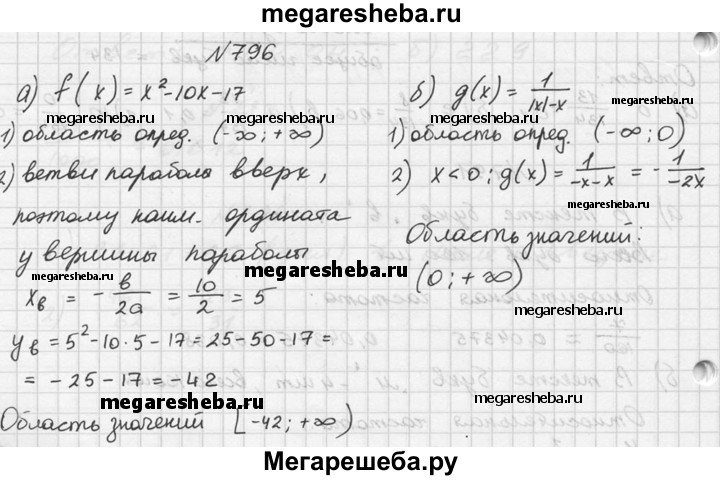 megaresheba.ru
N796
а) f(x) = x²-10x-17
1) область опред. (-∞; +∞)
2) ветви параболы вверх,
поэтому наим. ордината
у вершины параболы
megaresheba.ru
xв = -в/2a = 10/2 = 5
yв = 5²-10·5-17 = 25-50-17 =
= -25-17 = -42
megaresheba.ru
Область значений [-42; +∞)
б) g(x) = 1/|x|-x
megaresheba.ru
1) область опред. (-∞; 0)
2) x<0; g(x) = 1/-x-x = -1/-2x
Область значений:
megaresheba.ru
(0; +∞)
megaresheba.ru
megaresheba.ru
Мегарешеба.ру